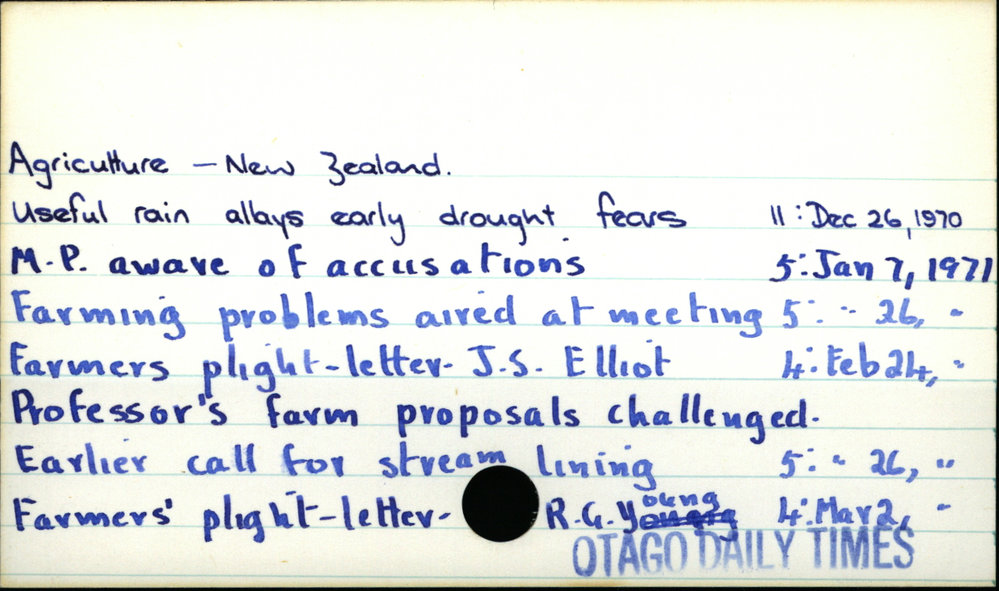 Agriculture – New Zealand.
Useful rain allays early drought fears 11: Dec 26, 1970
M.P. aware of accusations 5: Jan 7, 1971
Farming problems aired at meeting 5: " 26, "
Farmers plight-letter- J.S. Elliot 4: Feb 24, "
Professor's farm proposals challenged.
Earlier call for stream lining 5: " 26, "
Farmers' plight-letter- R.G. Young 4: Mar 2, "
OTAGO DAILY TIMES